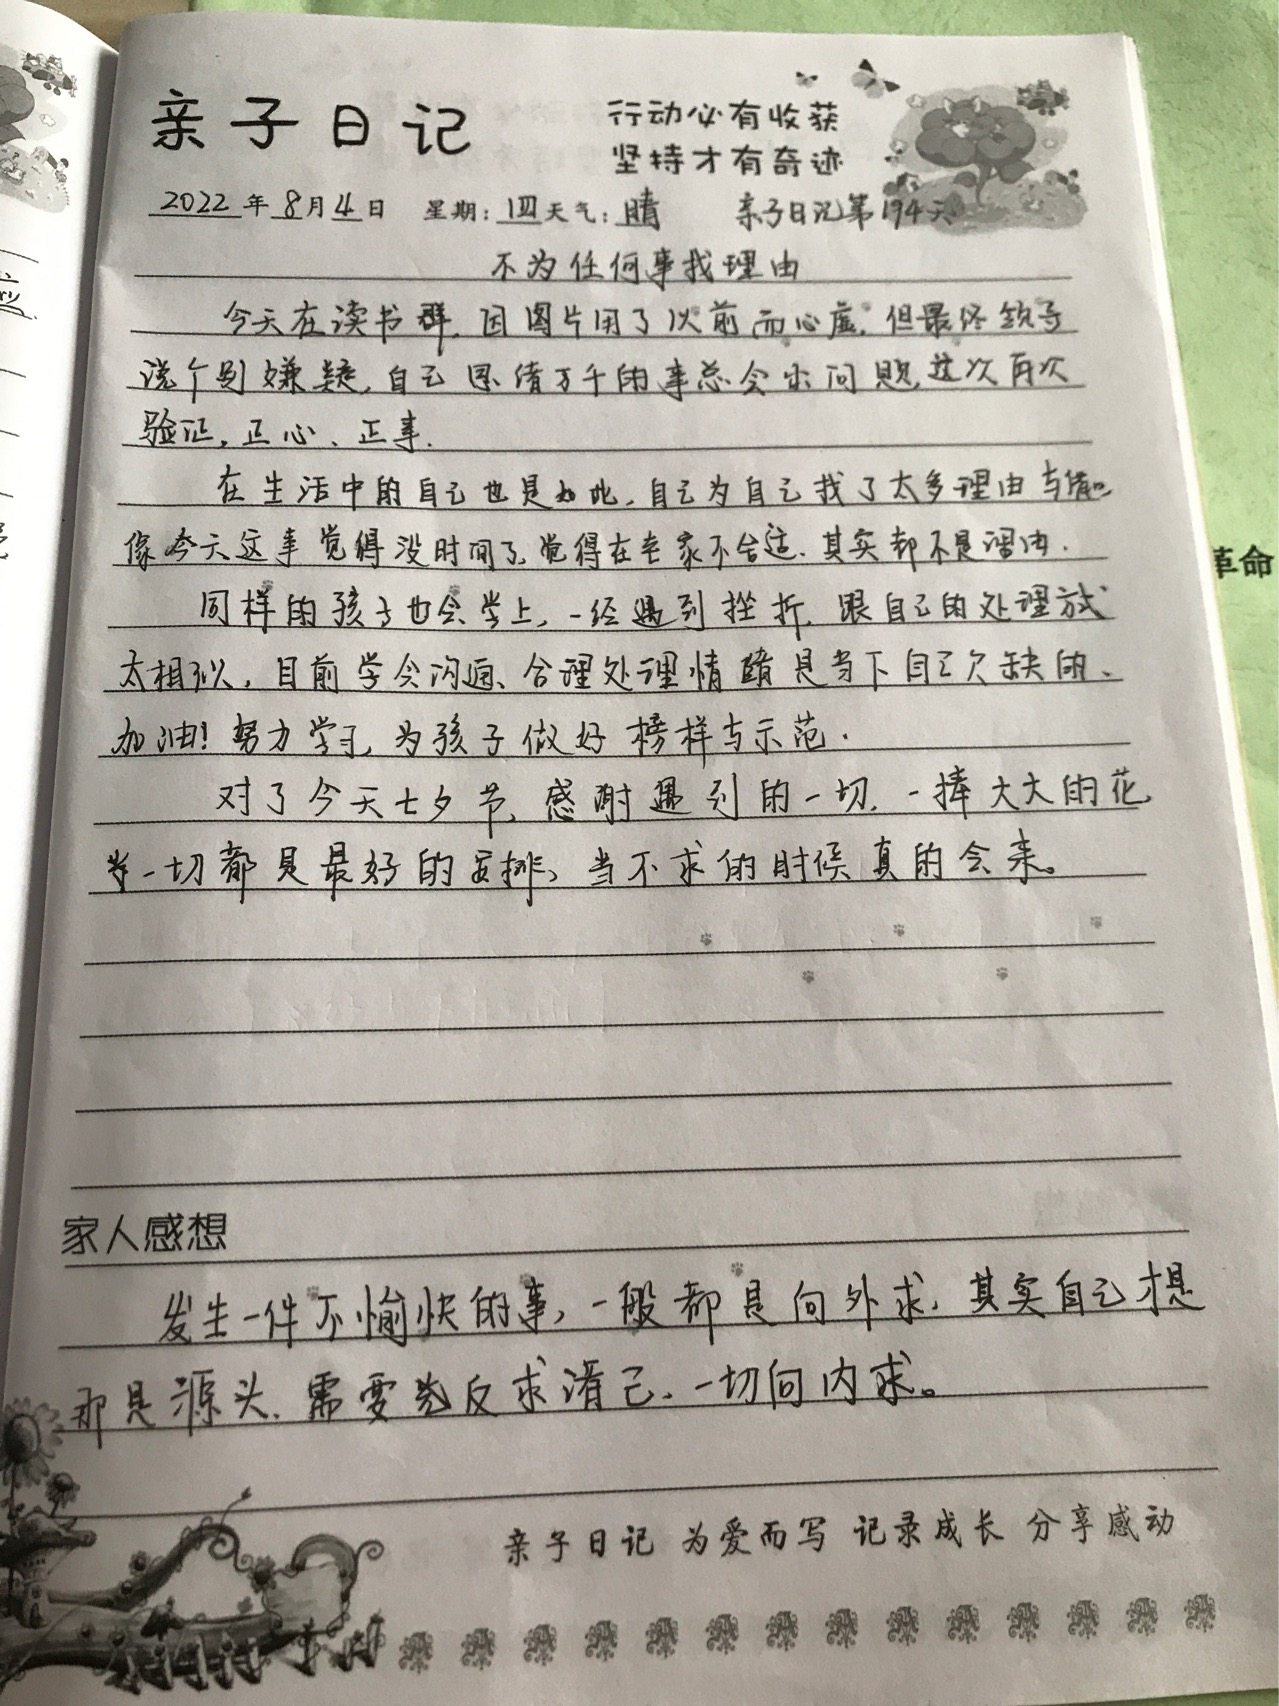 亲子日记
行动必有收获
坚持才有奇迹
2022年8月4日 星期:四 天气:晴 亲子日记第194天
不为任何事找理由
今天在读书群,因图片用了以前而心虚,但最终领导
说个别嫌疑,自己思绪万千的事总会出问题,这次再次
验证,正心、正事.
在生活中的自己也是如此,自己为自己找了太多理由与
像今天这事觉得没时间了,觉得在老家不合适.其实都不是理由.
同样的孩子也会学上,一经遇到挫折,跟自己的处理方式
太相似,目前学会沟通、合理处理情绪是当下自己欠缺的、
加油!努力学习,为孩子做好榜样与示范.
对了今天七夕节,感谢遇到的一切,一捧大大的花,
一切都是最好的安排,当不求的时候真的会来。
家人感想
发生一件不愉快的事,一般都是向外求,其实自己才是
那是源头,需要先反求诸己、一切向内求。
亲子日记 为爱而写 记录成长 分享感动
革命